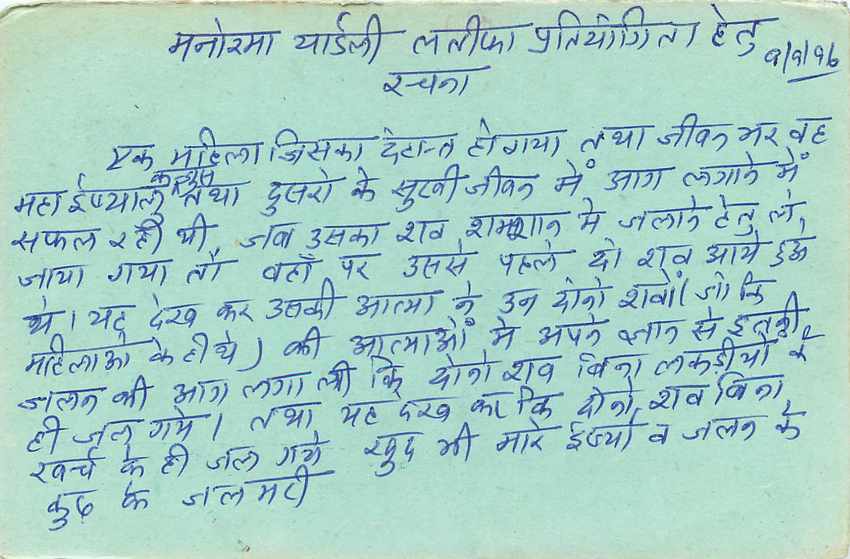 मनोरमा यार्डली लतीफा प्रतियोगिता हेतु
9/9/96
रचना
एक महिला जिसका देहान्त हो गया तथा जीवन भर वह
महा ईर्ष्यालु कन्जूस तथा दुसरो के सुखी जीवन में आग लगाने में
सफल रही थी, जब उसका शव शमशान मे जलाने हेतु ले
जाया गया तो वहाँ पर उससे पहले दो शव आये हुऐ
थे। यह देख कर उसकी आत्मा ने उन दोनो शवों (जो कि
महिलाओ के ही थे) की आत्माओं मे अपने ज्ञान से इतनी
जलन की आग लगा दी कि दोनो शव बिना लकड़ीयों के
ही जल गये। तथा यह देख कर कि दोनो शव बिना
खर्च के ही जल गये खुद भी मारे ईर्ष्या व जलन के
कुढ के जल मरी